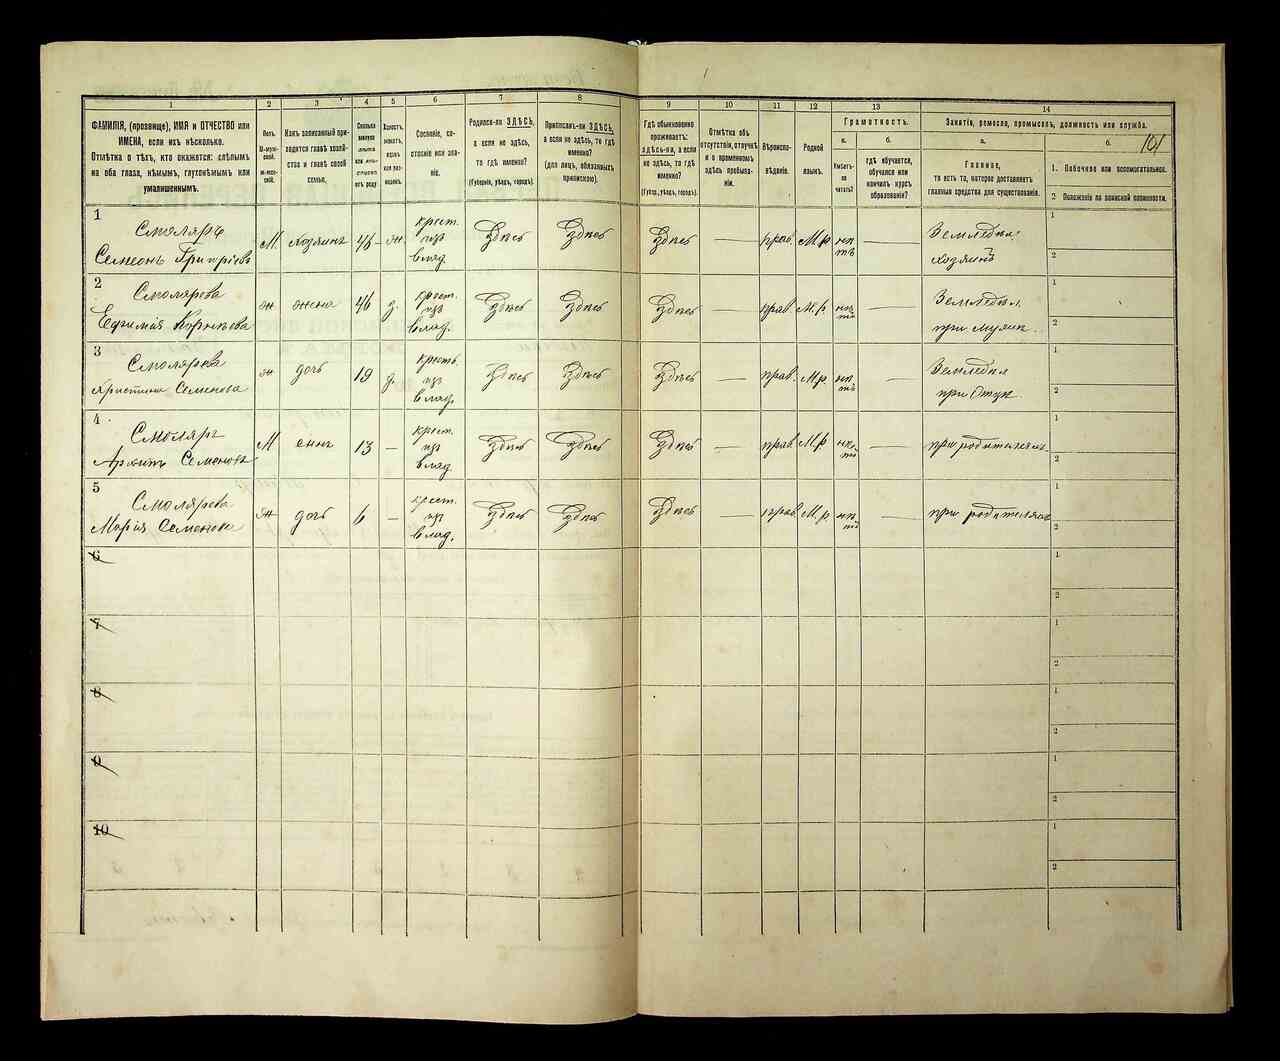 101
1 2 3 4 5 6 7 8 9 10 11 12 13 14
ФАМИЛІЯ, (прозвище), ИМЯ и ОТЧЕСТВО или
ИМЕНА, если ихъ нѣсколько.
Отмѣтка о тѣхъ, кто окажется: слѣпымъ
на оба глаза, нѣмымъ, глухонѣмымъ или
умалишеннымъ.
Полъ.
М-муж-
ской.
Ж-жен-
скій.
Какъ записанный при-
ходится главѣ хозяй-
ства и главѣ своей
семьи.
Сколько
минуло
лѣтъ
или мѣ-
сяцевъ
отъ роду
Холостъ,
женатъ,
вдовъ
или раз-
веденъ.
Сословіе, со-
стояніе или зва-
ніе.
Родился-ли ЗДѢСЬ,
а если не здѣсь,
то гдѣ именно?
(Губернія, уѣздъ, городъ).
Приписанъ-ли ЗДѢСЬ,
а если не здѣсь, то гдѣ
именно?
(для лицъ, обязанныхъ
припискою).
Гдѣ обыкновенно
проживаетъ:
здѣсь-ли, а если
не здѣсь, то гдѣ
именно?
(Губер., уѣздъ, городъ).
Отмѣтка объ
отсутствіи, отлучкѣ
и о временномъ
здѣсь пребыва-
ніи.
Вѣроиспо-
вѣданіе.
Родной
языкъ.
Грамотность.
а.
Умѣетъ-
ли
читать?
б.
гдѣ обучается,
обучался или
кончилъ курсъ
образованія?
Занятія, ремесло, промыселъ, должность или служба.
а.
Главное,
то есть то, которое доставляетъ
главныя средства для существованія.
б.
1. Побочное или вспомогательное.
2 Положеніе по воинской повинности.
1
Смоляръ
Семеонъ Григоріевъ
М. хозяинъ 46 ж.
крест.
изъ
влад.
Здѣсь Здѣсь Здѣсь — прав. М.р
нѣ
тъ
—
Земледѣл.
хозяинъ
1
2
2
Смолярова
Ефимія
ж жена 46 з.
крест.
изъ
влад.
Здѣсь Здѣсь Здѣсь — прав. М.р
нѣ
тъ
—
Земледѣл
при мужѣ.
1
2
3
Смолярова
Христина Семенова
ж дочь 19 д.
крестъ.
изъ
влад.
Здѣсь Здѣсь Здѣсь — прав. М.р
нѣ
тъ
—
Земледѣл
при Отцѣ.
1
2
4
Смоляръ
Архипъ Семеновъ
М. сынъ 13 —
крест.
изъ
влад.
Здѣсь Здѣсь Здѣсь — прав. М.р.
нѣ
тъ
—
при родителяхъ
1
2
5
Смолярова
Марія Семенова
ж дочь 6 —
крест.
изъ
влад.
Здѣсь Здѣсь Здѣсь — прав. М.р
нѣ
тъ
—
при родителяхъ
1
2
6
1
2
7
1
2
8
1
2
9
1
2
10
1
2